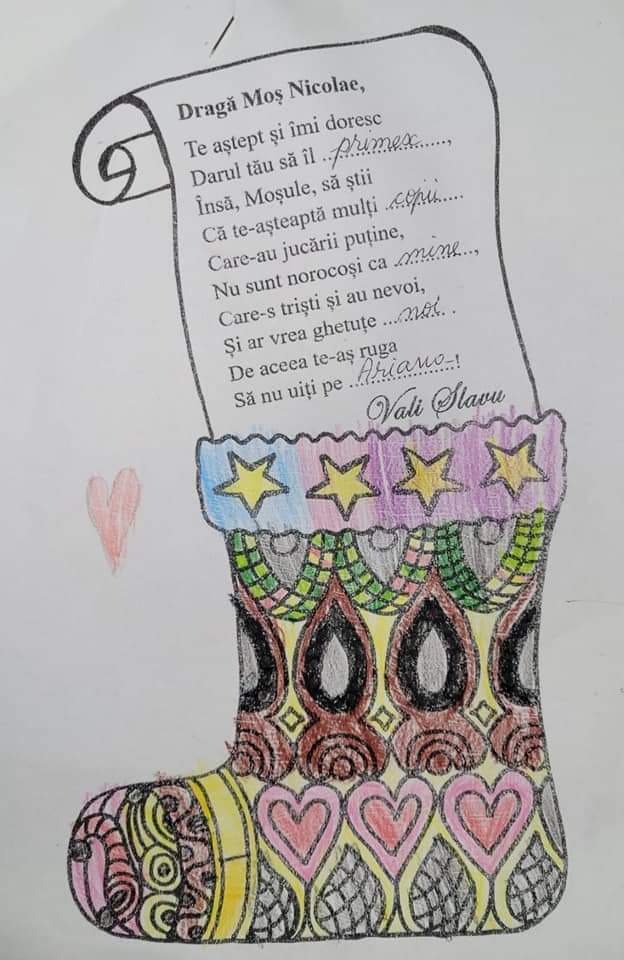 Dragă Moș Nicolae,
Te aștept și îmi doresc
Darul tău să îl ..primesc......,
Însă, Moșule, să știi
Că te-așteaptă mulți ..copii.....
Care-au jucării puține,
Nu sunt norocoși ca ..mine...,
Care-s triști și au nevoi,
Și ar vrea ghetuțe ...noi. .
De aceea te-aș ruga
Să nu uiți pe ..Ariana..!
Vali Slavu